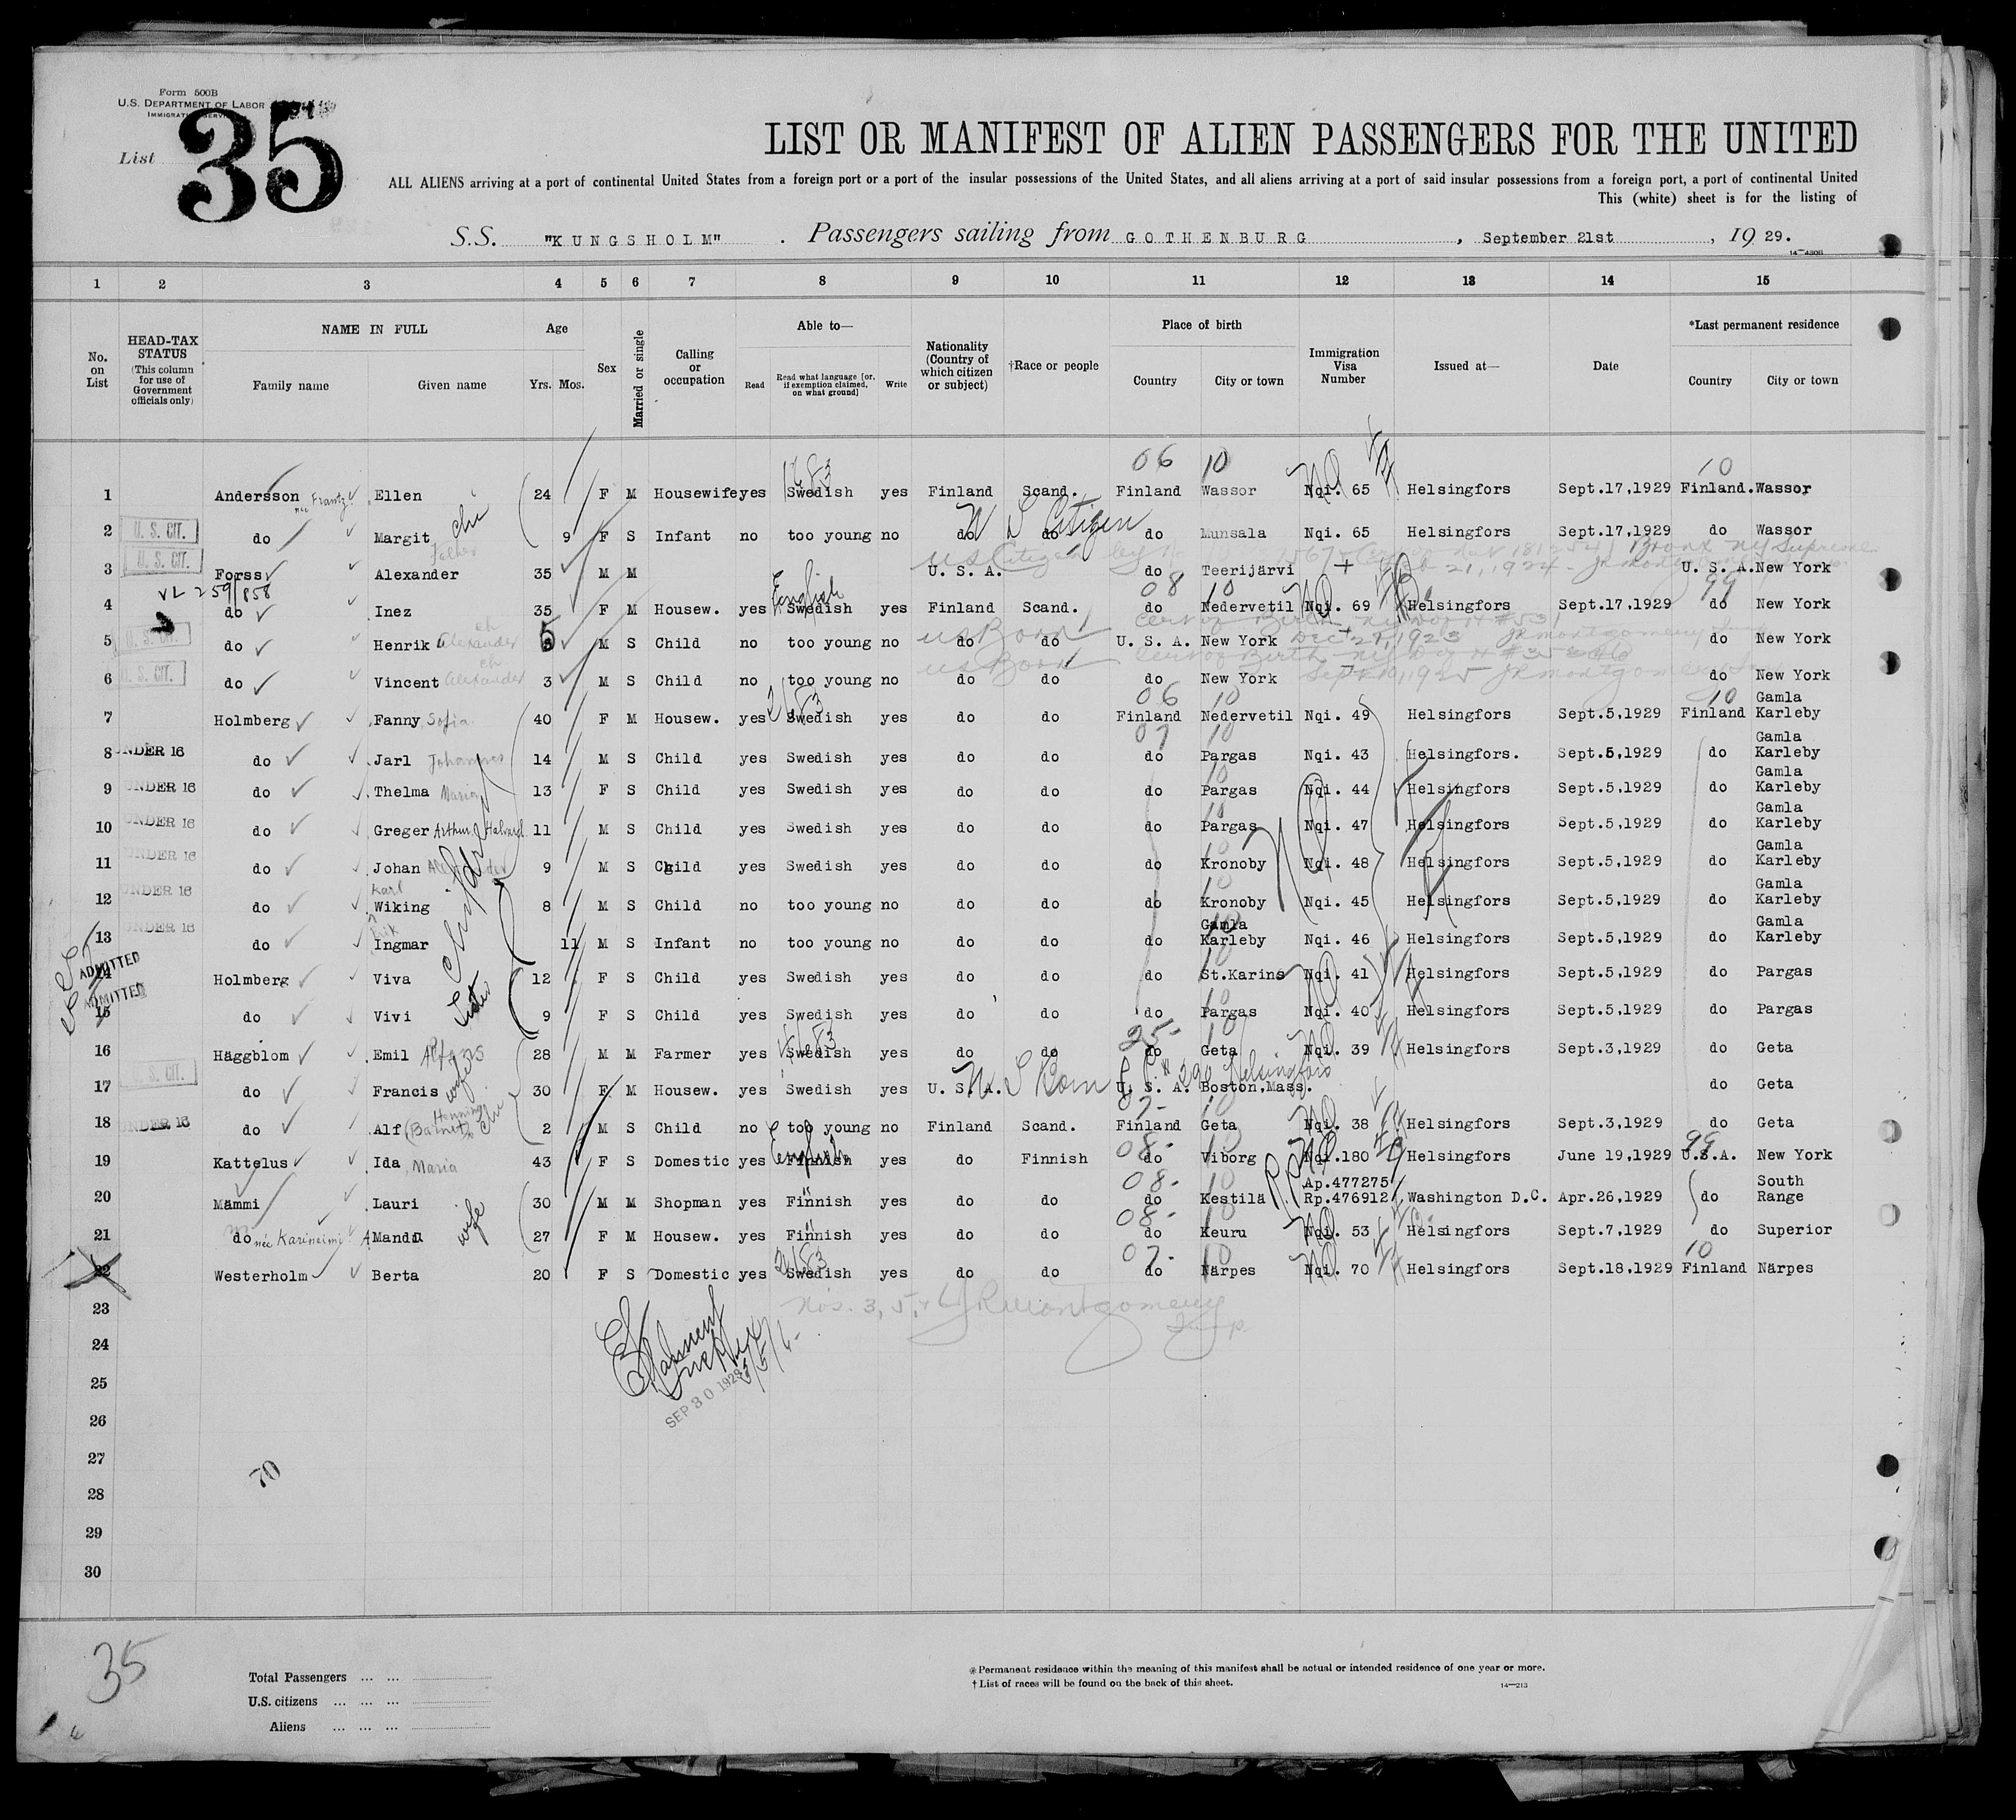 Form 500B
U.S. DEPARTMENT OF LABOR
List 35
LIST OR MANIFEST OF ALIEN PASSENGERS FOR THE UNITED
ALL ALIENS arriving at a port of continental United States from a foreign port or a port of the insular possessions of the United States, and all aliens arriving at a port of said insular possessions from a foreign port, a port of continental United
This (white) sheet is for the listing of
S.S. "KUNGSHOLM" . Passengers sailing from GOTHENBURG , September 21st , 19 29.
1 2 3 4 5 6 7 8 9 10 11 12 13 14 15
No. on List
HEAD-TAX STATUS (This column for use of Government officials only)
NAME IN FULL Family name Given name
Age Yrs. Mos.
Sex
Married or single
Calling or occupation
Able to— Read Read what language [or, if exemption claimed, on what ground] Write
Nationality (Country of which citizen or subject)
†Race or people
Place of birth Country City or town
Immigration Visa Number
Issued at—
Date
*Last permanent residence Country City or town
06 10 10
1 Andersson née Frantz Ellen 24 F M Housewife yes Swedish yes Finland Scand. Finland Wassor Nqi. 65 Helsingfors Sept.17,1929 Finland. Wassor
2 U. S. CIT. do Margit chi 9 F S Infant no too young no do do do Munsala Nqi. 65 Helsingfors Sept.17,1929 do Wassor
U S Citizen
3 U. S. CIT. Forss Alexander Father 35 M M U. S. A. do Teerijärvi U. S. A. New York
VL 259/858
08 10 99
4 do Inez 35 F M Housew. yes Swedish English yes Finland Scand. do Nedervetil Nqi. 69 Helsingfors Sept.17,1929 do New York
5 do Henrik Alexander ch 5 M S Child no too young no do do U. S. A. New York do New York
US Born Dec 27, 1923
6 U. S. CIT. do Vincent Alexander ch 3 M S Child no too young no do do do New York do New York
US Born
06 10 10
7 Holmberg Fanny Sofia 40 F M Housew. yes Swedish yes do do Finland Nedervetil Nqi. 49 Helsingfors Sept.5,1929 Finland Gamla Karleby
07 10
8 UNDER 16 do Jarl Johannes 14 M S Child yes Swedish yes do do do Pargas Nqi. 43 Helsingfors. Sept.5,1929 do Gamla Karleby
9 UNDER 16 do Thelma Maria 13 F S Child yes Swedish yes do do do Pargas Nqi. 44 Helsingfors Sept.5,1929 do Gamla Karleby
10 UNDER 16 do Greger Arthur Halvard 11 M S Child yes Swedish yes do do do Pargas Nqi. 47 Helsingfors Sept.5,1929 do Gamla Karleby
11 UNDER 16 do Johan 9 M S Child yes Swedish yes do do do Kronoby Nqi. 48 Helsingfors Sept.5,1929 do Gamla Karleby
12 UNDER 16 do Karl Wiking 8 M S Child no too young no do do do Kronoby Nqi. 45 Helsingfors Sept.5,1929 do Gamla Karleby
13 UNDER 16 do Erik Ingmar 11 M S Infant no too young no do do do Gamla Karleby Nqi. 46 Helsingfors Sept.5,1929 do Gamla Karleby
children
14 ADMITTED Holmberg Viva 12 F S Child yes Swedish yes do do do St.Karins Nqi. 41 Helsingfors Sept.5,1929 do Pargas
15 ADMITTED do Vivi Sister 9 F S Child yes Swedish yes do do do Pargas Nqi. 40 Helsingfors Sept.5,1929 do Pargas
25- 10
16 Häggblom Emil Alfons 28 M M Farmer yes Swedish yes do do do Geta Nqi. 39 Helsingfors Sept.3,1929 do Geta
17 U. S. CIT. do Francis wife 30 F M Housew. yes Swedish yes U. S. A. U. S. A. Boston,Mass. do Geta
U S Born P.P.# 290 Helsingfors
07- 10
18 UNDER 16 do Alf Henning chi 2 M S Child no too young no Finland Scand. Finland Geta Nqi. 38 Helsingfors Sept.3,1929 do Geta
08- 10 99
19 Kattelus Ida Maria 43 F S Domestic yes Finnish English yes do Finnish do Viborg Nqi.180 Helsingfors June 19,1929 U.S.A. New York
08- 10
20 Mämmi Lauri 30 M M Shopman yes Finnish yes do do do Kestilä Ap.477275 Rp.476912 Washington D.C. Apr.26,1929 do South Range
08- 10
21 do née Karineimi Manda wife 27 F M Housew. yes Finnish yes do do do Keuru Nqi. 53 Helsingfors Sept.7,1929 do Superior
07- 10 10
22 Westerholm Berta 20 F S Domestic yes Swedish yes do do do Närpes Nqi. 70 Helsingfors Sept.18,1929 Finland Närpes
23 Nos. 3, 5, & 6 JR Montgomery
Insp.
24
25
SEP 30 1929
26
27
70
28
29
30
35
Total Passengers ... ...
U.S. citizens ... ... ...
Aliens ... ... ...
* Permanent residence within the meaning of this manifest shall be actual or intended residence of one year or more.
† List of races will be found on the back of this sheet.
14—213